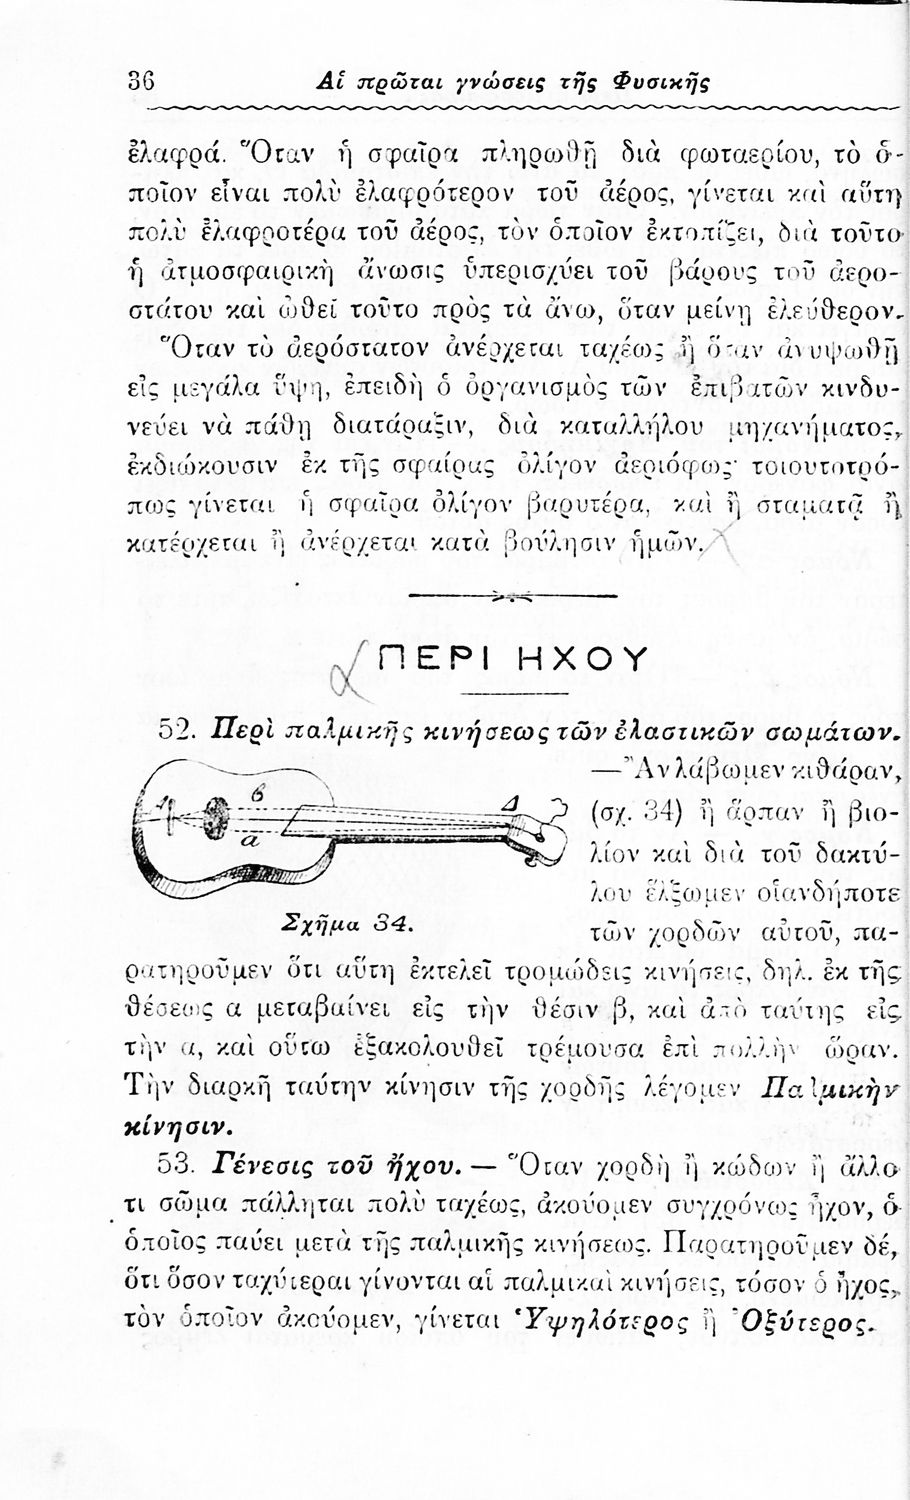 36
Αἱ πρῶται γνώσεις τῆς Φυσικῆς
ἐλαφρά. Ὅταν ἡ σφαῖρα πληρωθῇ διὰ φωταερίου, τὸ ὁ-
ποῖον εἶναι πολὺ ἐλαφρότερον τοῦ ἀέρος, γίνεται καὶ αὕτη
πολὺ ἐλαφροτέρα τοῦ ἀέρος, τὸν ὁποῖον ἐκτοπίζει, διὰ τοῦτο
ἡ ἀτμοσφαιρικὴ ἄνωσις ὑπερισχύει τοῦ βάρους τοῦ ἀερο-
στάτου καὶ ὠθεῖ τοῦτο πρὸς τὰ ἄνω, ὅταν μείνῃ ἐλεύθερον.
Ὅταν τὸ ἀερόστατον ἀνέρχεται ταχέως ἢ ὅταν ἀνυψωθῇ
εἰς μεγάλα ὕψη, ἐπειδὴ ὁ ὀργανισμὸς τῶν ἐπιβατῶν κινδυ-
νεύει νὰ πάθῃ διατάραξιν, διὰ καταλλήλου μηχανήματος,
ἐκδιώκουσιν ἐκ τῆς σφαίρας ὀλίγον ἀεριόφως· τοιουτοτρό-
πως γίνεται ἡ σφαῖρα ὀλίγον βαρυτέρα, καὶ ἢ σταματᾷ ἢ
κατέρχεται ἢ ἀνέρχεται κατὰ βούλησιν ἡμῶν.
ΠΕΡΙ ΗΧΟΥ
52. Περὶ παλμικῆς κινήσεως τῶν ἐλαστικῶν σωμάτων.
—Ἂν λάβωμεν κιθάραν,
(σχ. 34) ἢ ἅρπαν ἢ βιο-
λίον καὶ διὰ τοῦ δακτύ-
λου ἕλξωμεν οἱανδήποτε
τῶν χορδῶν αὐτοῦ, πα-
β
α
Δ
Σχῆμα 34.
ρατηροῦμεν ὅτι αὕτη ἐκτελεῖ τρομώδεις κινήσεις, δηλ. ἐκ τῆς
θέσεως α μεταβαίνει εἰς τὴν θέσιν β, καὶ ἀπὸ ταύτης εἰς
τὴν α, καὶ οὕτω ἐξακολουθεῖ τρέμουσα ἐπὶ πολλὴν ὥραν.
Τὴν διαρκῆ ταύτην κίνησιν τῆς χορδῆς λέγομεν Παλμικὴν
κίνησιν.
53. Γένεσις τοῦ ἤχου. — Ὅταν χορδὴ ἢ κώδων ἢ ἄλλο
τι σῶμα πάλληται πολὺ ταχέως, ἀκούομεν συγχρόνως ἦχον, ὁ
ὁποῖος παύει μετὰ τῆς παλμικῆς κινήσεως. Παρατηροῦμεν δέ,
ὅτι ὅσον ταχύτεραι γίνονται αἱ παλμικαὶ κινήσεις, τόσον ὁ ἦχος,
τὸν ὁποῖον ἀκούομεν, γίνεται Ὑψηλότερος ἢ Ὀξύτερος.